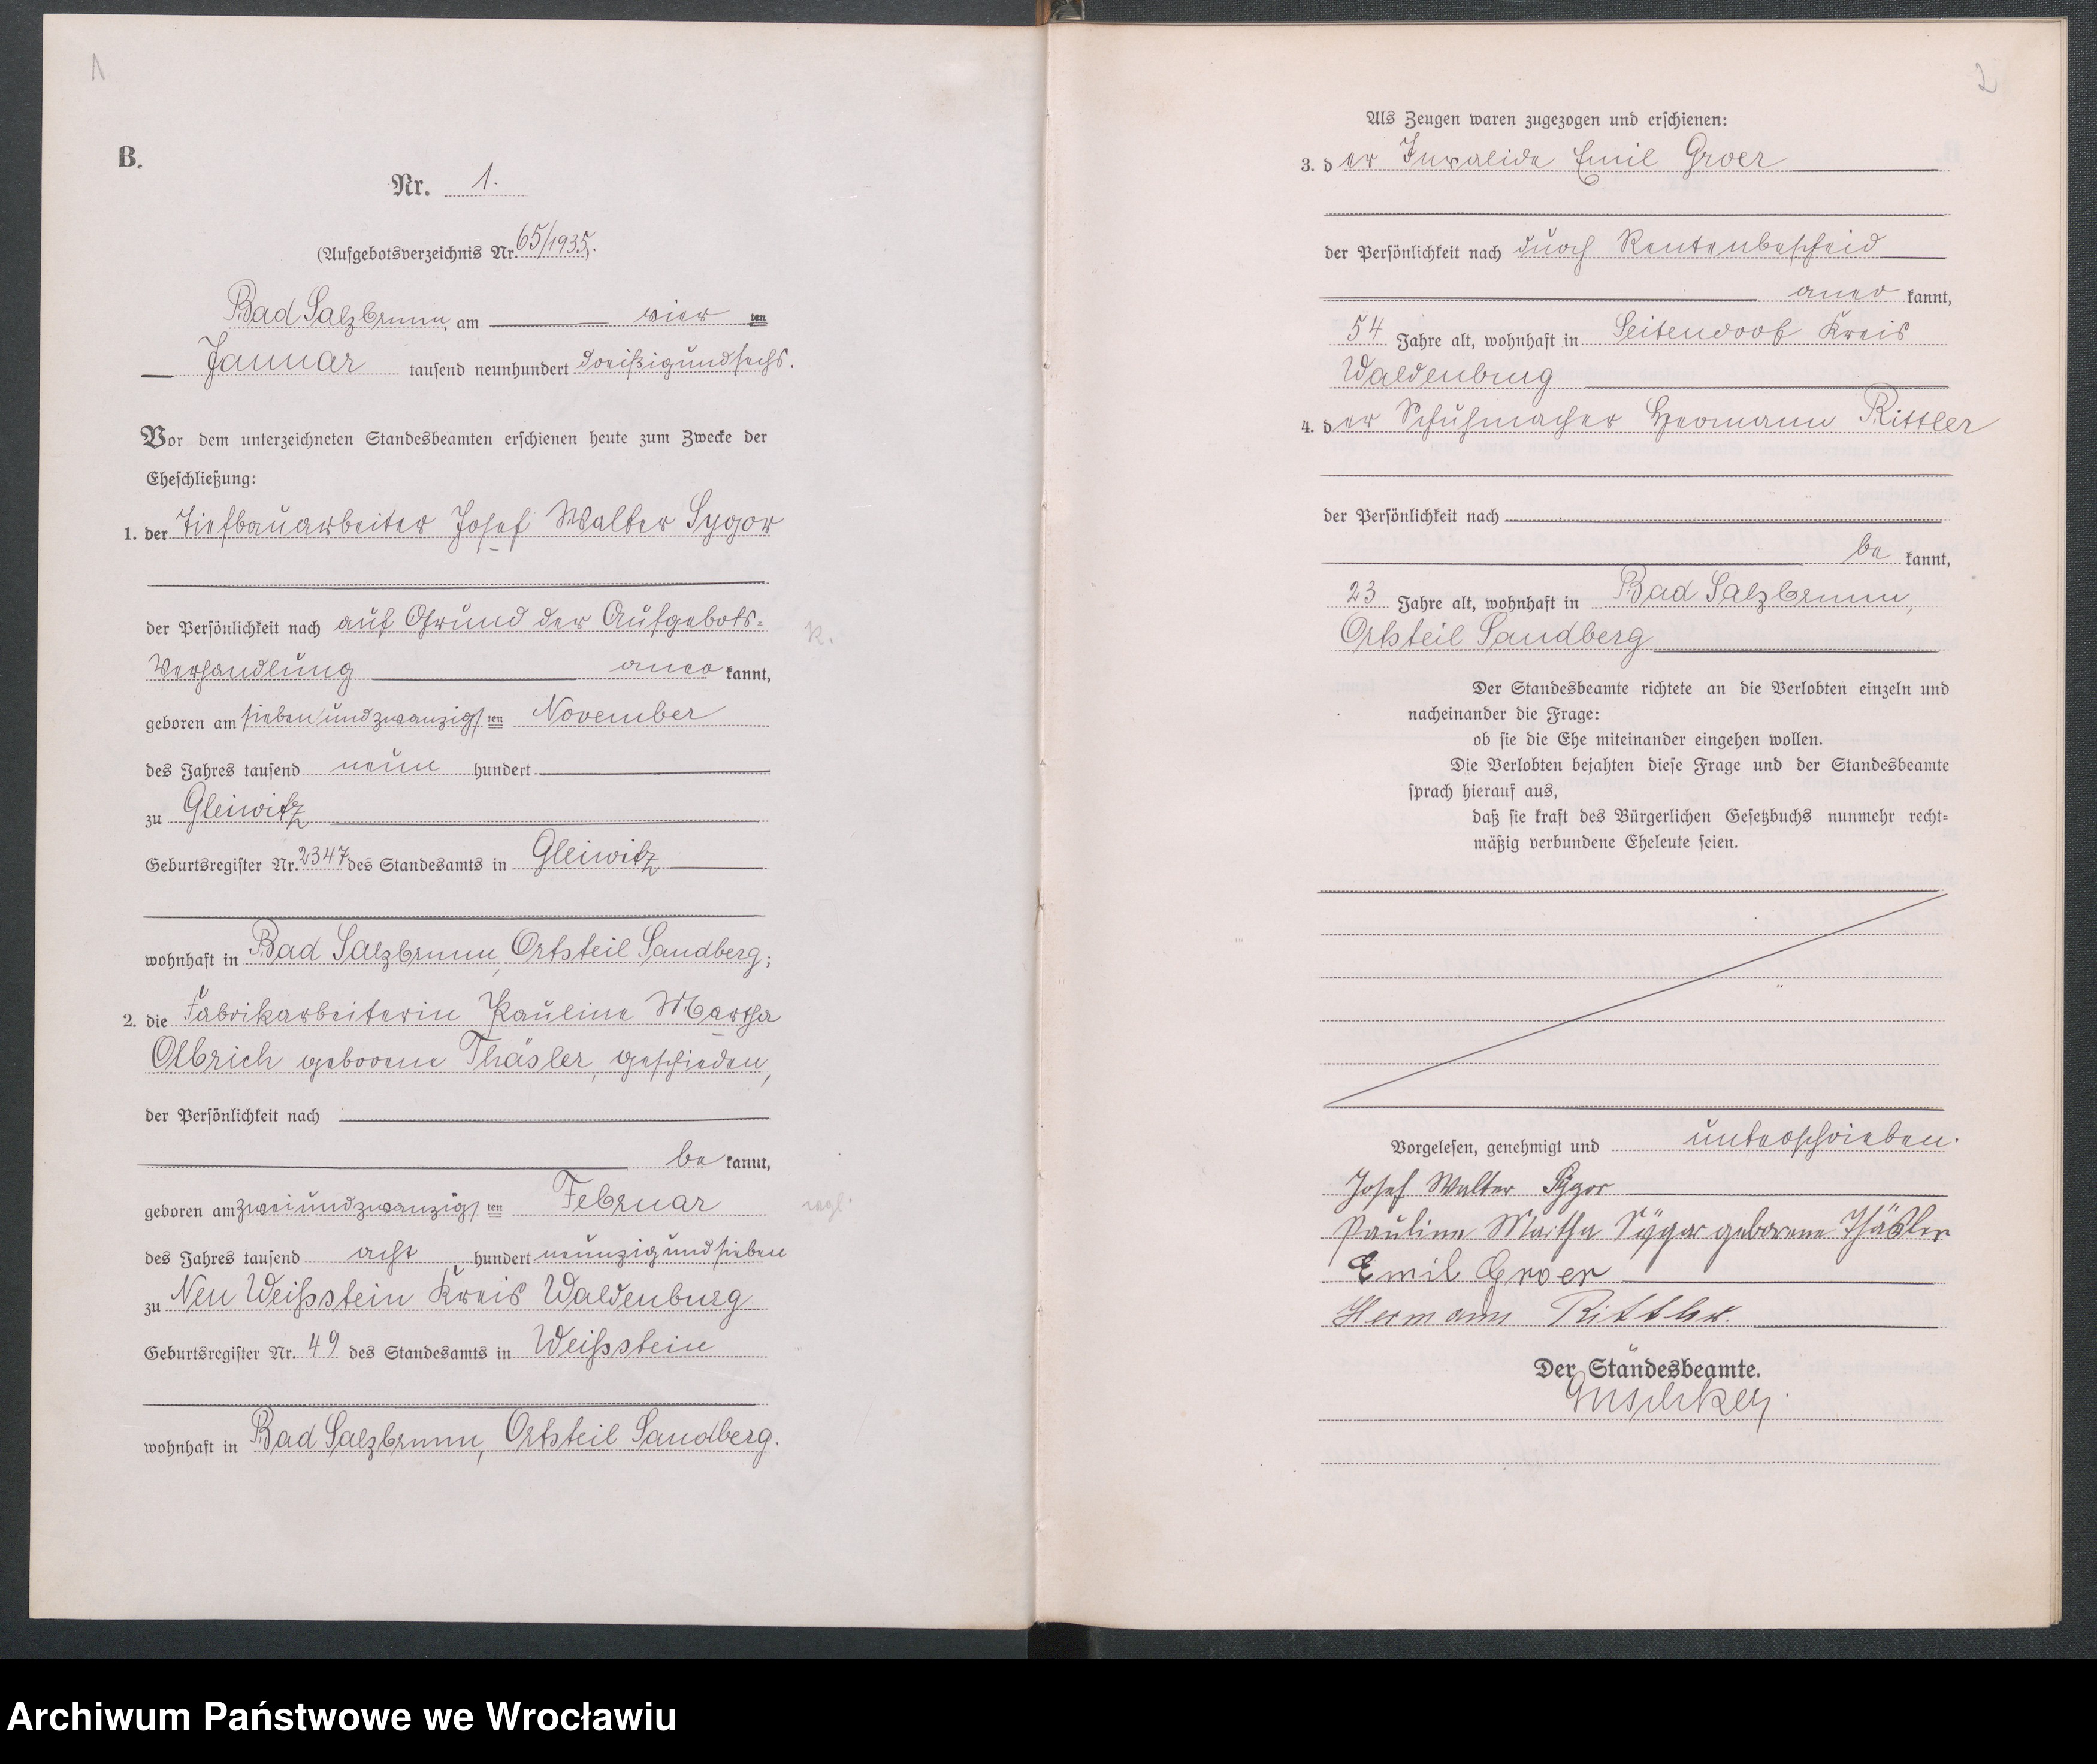 1
B.
Nr. 1.
(Aufgebotsverzeichnis Nr. 65/1935).
Bad Salzbrunn, am vier ten
Januar tausend neunhundert dreißigundsechs.
Vor dem unterzeichneten Standesbeamten erschienen heute zum Zwecke der
Eheschließung:
1. der Tiefbauarbeiter Josef Walter Sygor
der Persönlichkeit nach auf Grund der Aufgebots-
Verhandlung aner kannt,
k.
geboren am siebenundzwanzigsten November
des Jahres tausend neun hundert
zu Gleiwitz
Geburtsregister Nr. 2347 des Standesamts in Gleiwitz
wohnhaft in Bad Salzbrunn, Ortsteil Sandberg;
2. die Fabrikarbeiterin Pauline Martha
Olbrich geborene Thäsler, geschieden,
der Persönlichkeit nach
be kannt,
geboren am zweiundzwanzigsten Februar
des Jahres tausend acht hundert neunzigundsieben
zu Neu Weißstein Kreis Waldenburg
Geburtsregister Nr. 49 des Standesamts in Weißstein
wohnhaft in Bad Salzbrunn, Ortsteil Sandberg.
2
Als Zeugen waren zugezogen und erschienen:
3. der Invalide Emil Groer
der Persönlichkeit nach durch Rentenbescheid
aner kannt,
54 Jahre alt, wohnhaft in Seitendorf Kreis
Waldenburg
4. der Schuhmacher Hermann Rittler
der Persönlichkeit nach
be kannt,
23 Jahre alt, wohnhaft in Bad Salzbrunn,
Ortsteil Sandberg
Der Standesbeamte richtete an die Verlobten einzeln und
nacheinander die Frage:
ob sie die Ehe miteinander eingehen wollen.
Die Verlobten bejahten diese Frage und der Standesbeamte
sprach hierauf aus,
daß sie kraft des Bürgerlichen Gesetzbuchs nunmehr recht-
mäßig verbundene Eheleute seien.
Vorgelesen, genehmigt und unterschrieben.
Josef Walter Sygor
Pauline Martha Sygor geborene Thäsler
Emil Groer
Hermann Rittler.
Der Standesbeamte.
Archiwum Państwowe we Wrocławiu